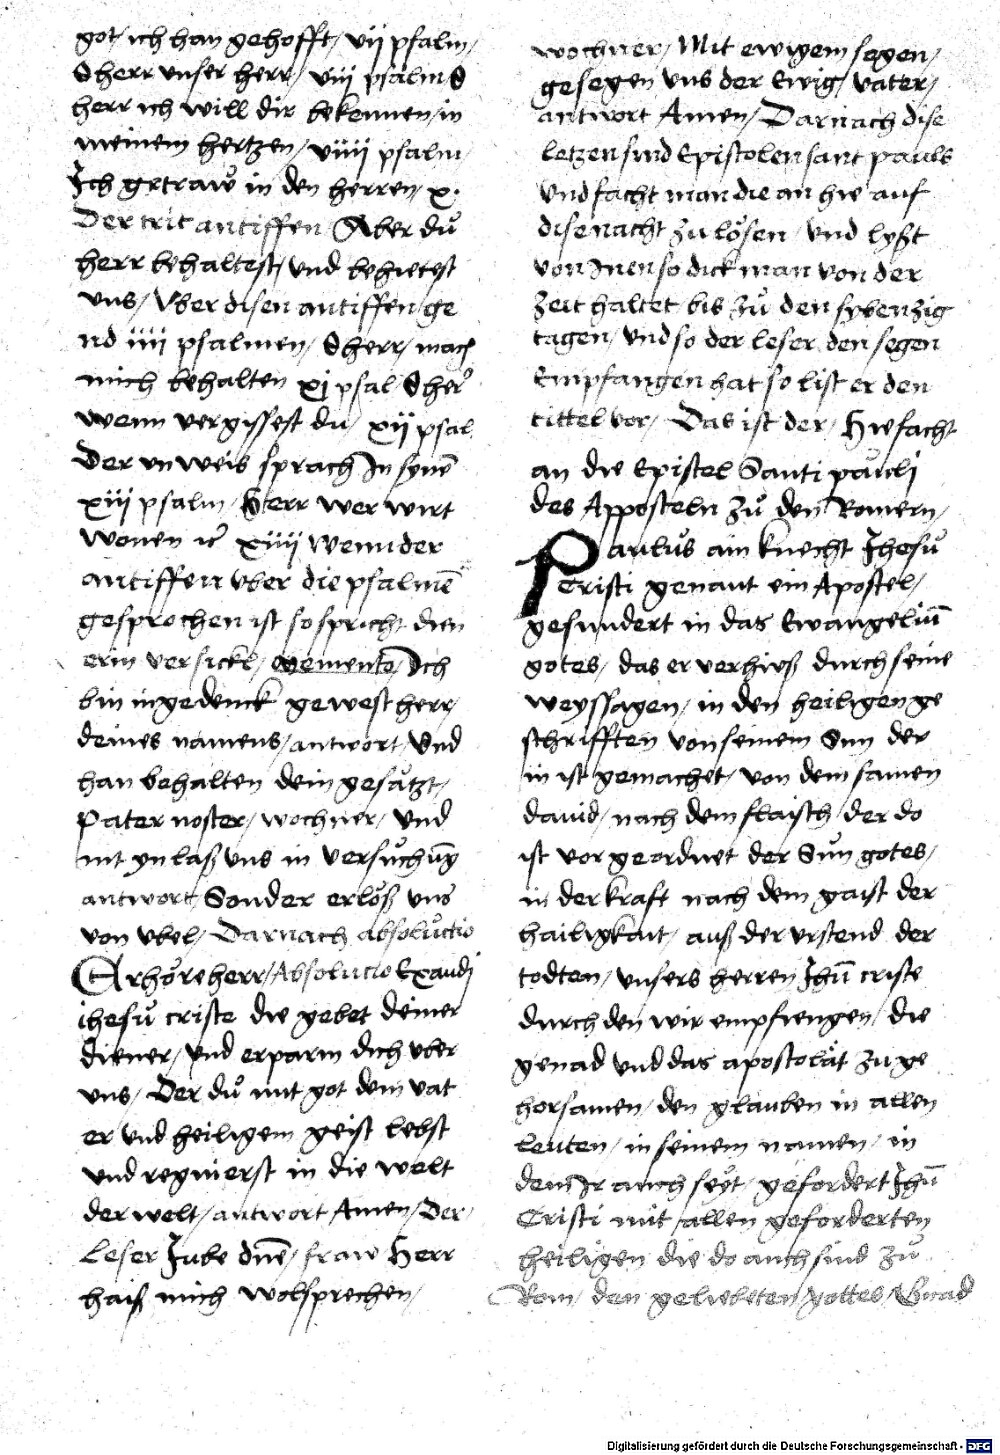 got / ich han gehofft / vij psalm /
O herr vnser herr / viij psalm O
herr ich will dir bekennen / in
meinem hertzen / viiij psalm
Ich getraw in den herren / x ·
Der trit antiffen / Aber du
herr behaltest / vnd behietest
vns / Vber disen antiffen / ge
nd iiii psalmen / O herr / mach
mich behalten xj psal O her
wenn vergissest du / xij psal
Der vnweis sprach In synē
xiij psalm / Herr wer wirt
wonen xiiij Wenn der
antiffen vber die psalmē
gesprochen ist so spricht den
erin versickel / Memento Ich
bin ingedenck gewest herr /
deines namens / antwort / Vnd
han behalten dein gesätzt /
Pater noster / wochner / Vnd
nit yn laß vns in versuchūg
antwort Sonder erlöß vns
von vbel / Darnach absolutio
Erhöre herr / Absolutio Exaudi
ihesu criste die gebet deiner
diener / vnd erparm dich vber
vns / Der du mit got dem vat
er vnd heiligem geist lebst
vnd regnierst in die welt
der welt / antwort Amen / Der /
Leser Jube dn̄e / fraw Herr
hais mich wolsprechen /
wochner / Mit ewigem segen /
gesegen vns der Ewig / vater /
antwort Amen / Darnach dise
letzen sind Epistolen sant pauls
vnd facht man die an hie auf
dise nacht zu lösen / vnd lyßt
von Inen so dick man von der
zeit haltet bis zu den sybenzig
tagen / vnd so der leser den segen
Empfangen hat so list er den
tittel vor / Das ist der / Hie facht
an die Epistel Santi pauli
des Apposteln zu den Romern /
Paulus ain knecht Jhesu
Cristi genant ein Apostel /
gesundert in das Ewangeliū
gotes / das er verhieß durch seine
weyssagen / in den heiligen ge
schrifften von seinem Sun der
in ist gemachet / von dem samen
dauid / nach dem flaisch / der do
ist vor geordnet der Sun gotes /
in der kraft nach dem gaist der
hailigkait / auß der vrstend der
todten / vnsers herren Jhū criste
durch den wir empfiengen / die
genad vnd das apostolät zu ge
horsamen / den glauben in allen
leuten / in seinem namen / in
dem Ir auch seyt / gefordert Jhū
Cristi mit allen geforderten
heiligen die do auch sind zu
Rom / den geliebten gottes / Gnad
Digitalisierung gefördert durch die Deutsche Forschungsgemeinschaft - DFG